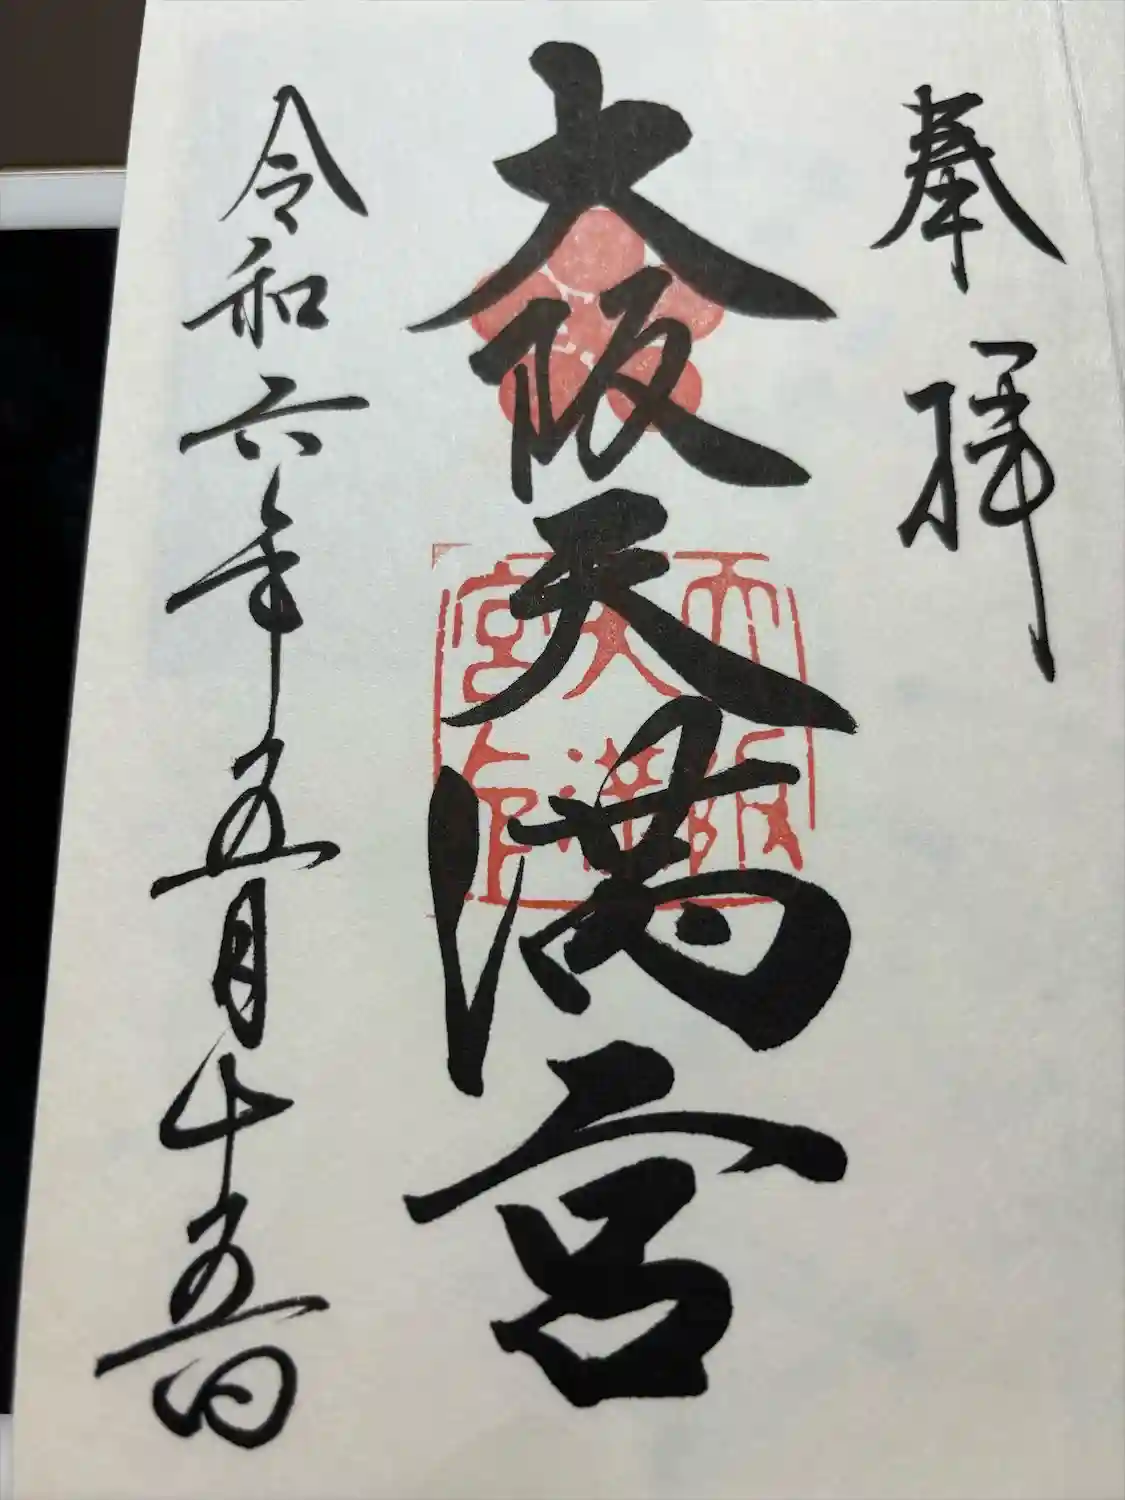 奉拝
大阪天満宮
大阪天満宮印
令和六年五月十五日